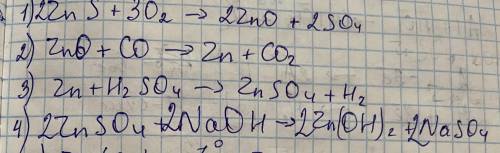 1) 2ZnS + 3O₂ → 2ZnO + 2SO₄
2) ZnO + CO → Zn + CO₂
3) Zn + H₂SO₄ → ZnSO₄ + H₂
4) 2ZnSO₄ + 2NaOH → 2Zn(OH)₂ + 2NaSO₄